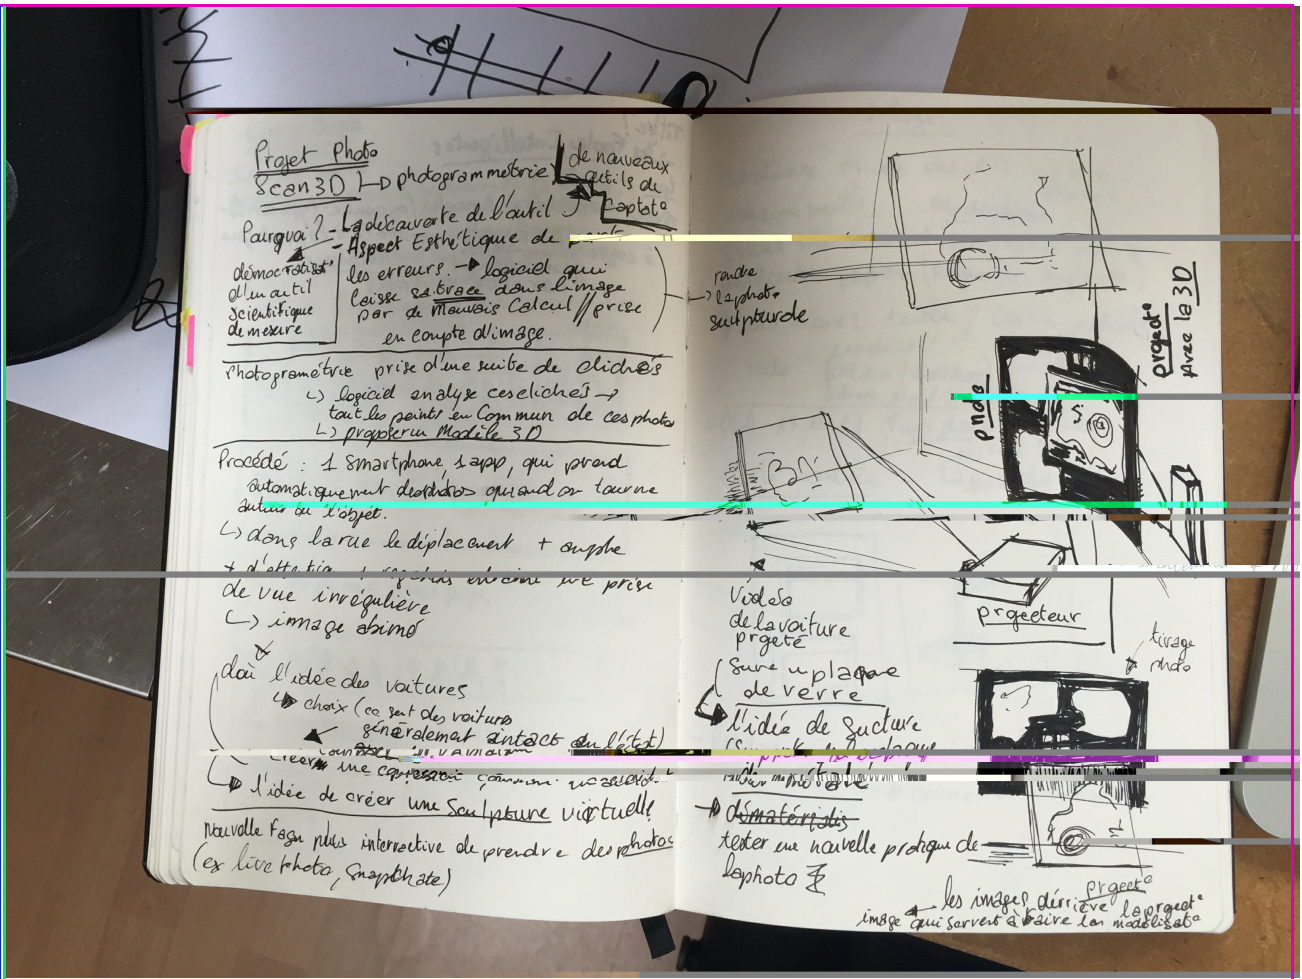 Projet Photo
Scan3D photogrammétrie
de nouveaux
outils de
Captat°
Pourquoi? - La découverte de l'outil
- Aspect Esthétique de
démocratisat°
d'un outil
scientifique
de mesure
les erreurs. logiciel qui
laisse sa trace dans l'image
par de mauvais Calcul // prise
en compte d'image.
Photogramétrie prise d'une suite de clichés
logiciel analyse ces clichés
tout les points en Commun de ces photos
proposer un Modèle 3D
Procédé : 1 Smartphone, 1 app, qui prend
automatiquement des photos quand on tourne
autour de l'objet.
dans la rue le déplacement +
+ d'attention prise
de vue irrégulière
image abimé
doù l'idée des voitures
choix (ce sont des voitures
généralement en l'état)
Créer une
l'idée de créer une Sculpture virtuelle
Nouvelle façon plus interractive de prendre des photos
(ex live photo, Snapchate)
rendre
la photo
sculpturale
project°
avec la 3D
photo
projecteur
Vidéo
de la voiture
prgeté
Sure un plaque
de verre
l'idée de
tirage
photo
tester une nouvelle pratique de
la photo
project°
les images dérrière la project°
image qui servent à faire la modélisat°